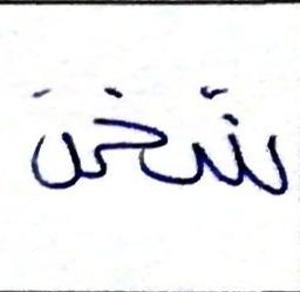 شخن